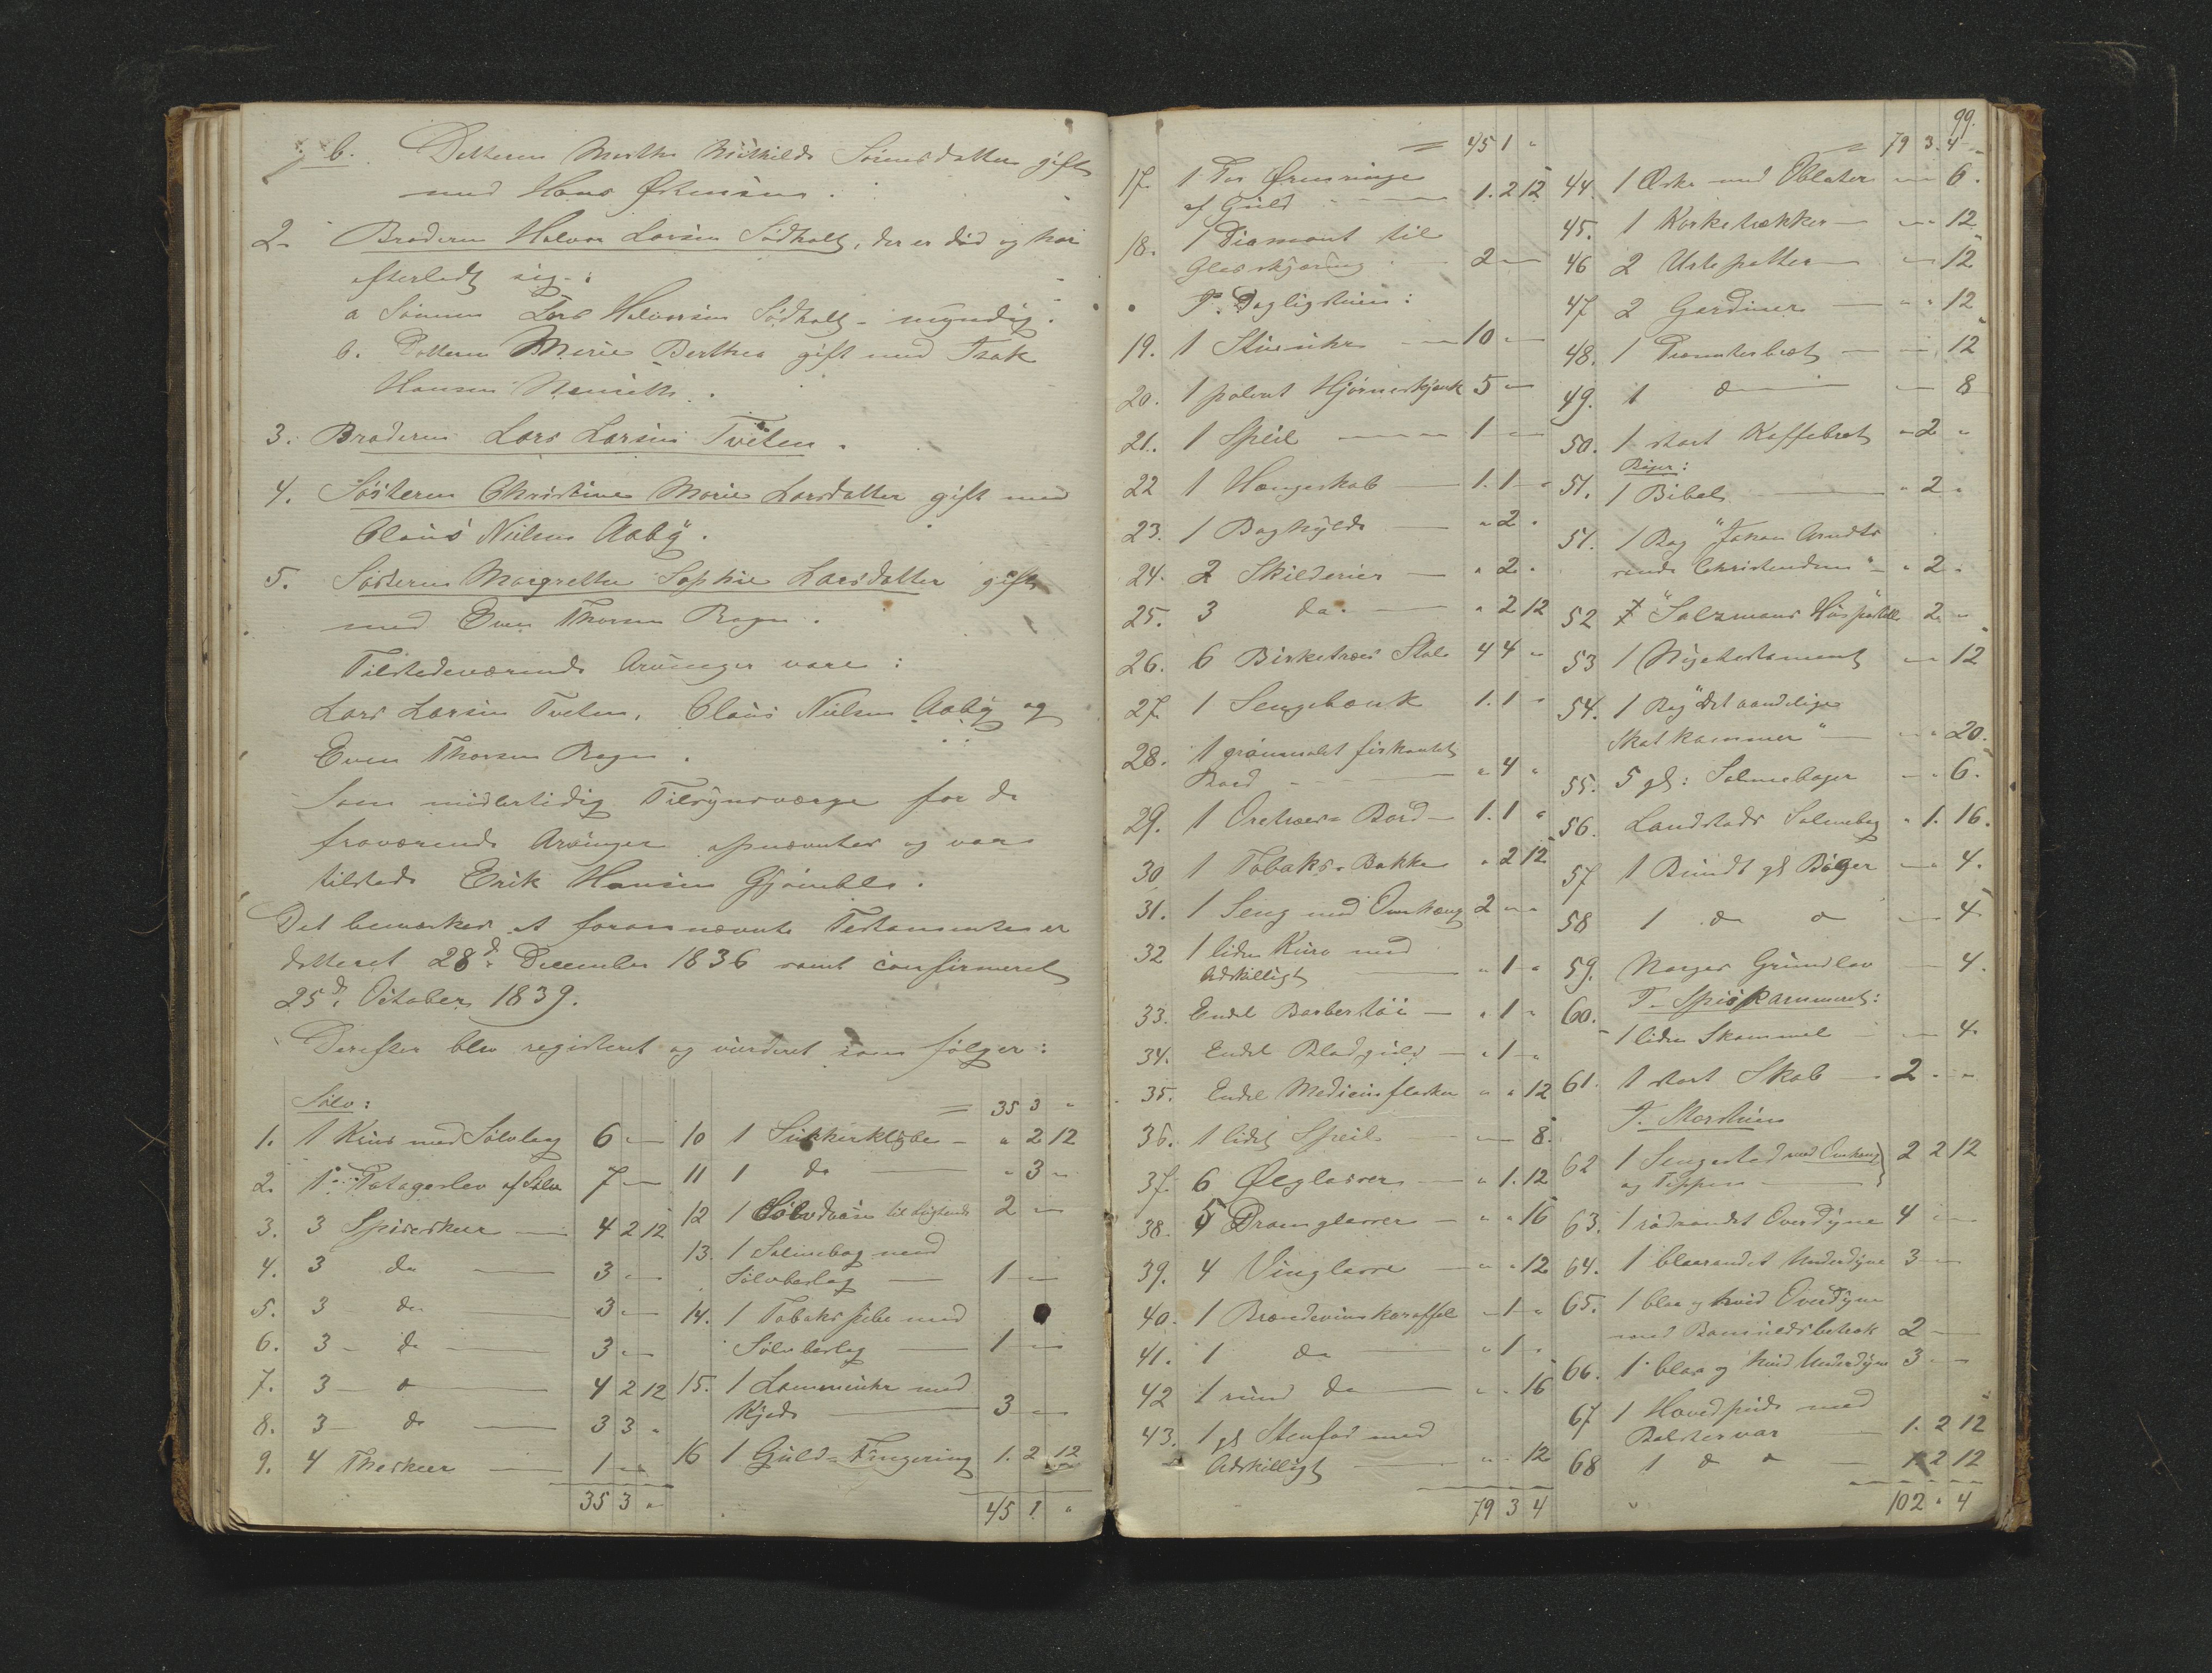 b. Datteren Marthe Mathilde Sørensdatter gift
med Hans
2. Broderen Halvor Larsen Sødholt, der er død og har
efterladt sig:
a Sønnen Lars Halvorsen Sødholt - myndig.
b. Datteren Maria Berthea gift med Isak
Hansen
3. Broderen Lars Larsen Tveten.
4. Søsteren Christine Marie Larsdatter gift med
Claus Nielsen Aaby.
5. Søsteren Margrethe Sophie Larsdatter gift
med Even Thorsen Rogn.
Tilstedeværende Arvinger vare:
Lars Larsen Tveten, Claus Nielsen Aaby og
Even Thorsen Rogn.
Som midlertidig Tilsynsværge for de
fraværende Arvinger opnævntes og var
tilstede Erik Hansen Gjømble.
Det bemærkes at forannævnte Testamente er
datteret 28d. December 1836 samt confirmeret
25d. October 1839.
Derefter blev registeret og vurderet som følger:
Sølv:
1. 1 Krus med Sølvlaag 6 " "
2. 1 Potageslev af Sølv 7 " "
3. 3 Spiseskeer 4 2 12
4. 3 do 3 " "
5. 3 do 3 " "
6. 3 do 3 " "
7. 3 do 4 2 12
8. 3 do 3 3 "
9. 4 Theskeer 1 " "
35 3 "
= 35 3 "
10 1 Sukkerklybe " 2 12
11 1 do " 3 "
12 1 Sølvdaase til 2 " "
13. 1 Salmebog med
Sølvbeslag 1 " "
14. 1 Tobakspibe med
Sølvbeslag 1 " "
15. 1 Lommeuhr med
Kjede 3 " "
16 1 Guld-Fingering 1. 2 12
45 1. "
= 45 1 "
17. 1 Par Ørenringe
af Guld 1. 2 12
18. 1 Diamant til
Glasskjæring 2 "
I Dagligstuen:
19. 1 Stueuhr 10 "
20. 1 poleret Hjørneskjænk 5 "
21. 1 Speil 1 "
22 1 Hængeskab 1. 1 "
23. 1 Boghylde " 2 "
24. 2 Skilderier " 2 "
25. 3 do. " 2 12
26. 6 Birketræes Stole 4 4 "
27. 1 Sengebænk 1. 1 "
28. 1 grønmalet firkantet
Bord " 4 "
29. 1 Oretræes-Bord 1. 1 "
30 1 Tobaks-Bakke " 2 12
31. 1 Seng med Omhæng 2 " "
32 1 liden Kurv med
Adskilligt " 1 "
33. Endel Barbertøi " 1 "
34. Endel Bladguld " 1 "
35. Endel Medicinflasker " " 12
36. 1 lidet Speil " 8.
37. 6 Ølglasser " 1. 12
38. 5 Dramglasser " " 16
39. 4 Vinglasse " " 12
40. 1 Brændevinskaraffel " 1 "
41. 1 do " 1 "
42 1 rund do " " 16
43. 1 gl Stenfad med
Adskilligt " " 12
79 3 4
99.
= 79 3. 4
44. 1 Æske med Oblater " 6.
45. 1 Korketrækker " 12
46 2 Urtepotter " 12
47 2 Gardiner " " 12
48. 1 Præsenterbræt " 12
49. 1 do " 8
50. 1 stort Kaffebræt " 2 "
Bøger:
51. 1 Bibel " 2 "
51. 1 Bog "Johan Arndts
sande Christendom" " 2 "
52 "Salzmans Huspostill 2. "
53 1 Nyetestament " 12
54. 1 Bog "Det aandelige
Skatkammer" " " 20.
55. 5 gl: Salmebøger " " 6.
56. Landstads Salmebog " 1. 16.
57 1 Bundt gl Bøger " " 4.
58 1 do do " 4
59. Norges Grundlov " 4.
I Spiskammeret:
60. 1 liden Skammel " 4
61. 1 stort Skab 2 " "
I Storstuen
62 1 Sengested med Omhæng
og Teppen 2 2 12
63. 1 rødrandet Overdyne 4 " "
64. 1 blaarandet Underdyne 3 "
65. 1 blaa og hvid Overdyne
med Bomuldsbetræk 2
66. 1 blaa og hvid Underdyne 3 "
67 1 Hovedpude med
Bolstervar 1. 2 12
68 1 do do 1 2 12
102 " 4